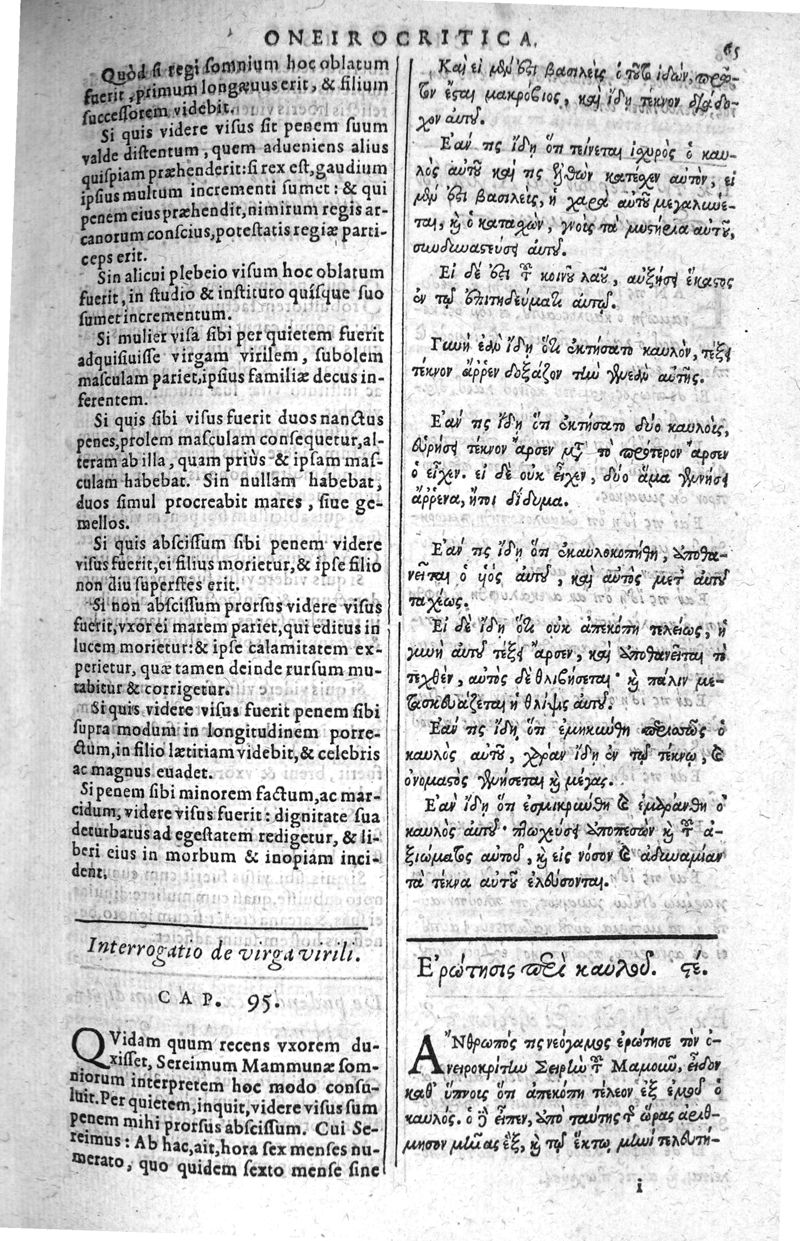 ONEIROCRITICA.
65
Quòd si regi somnium hoc oblatum
fuerit, primum longæuus erit, & filium
successorem videbit.
Si quis videre visus sit penem suum
valde distentum, quem adueniens alius
quispiam præhenderit: si rex est, gaudium
ipsius multum incrementi sumet: & qui
penem eius præhendit, nimirum regis ar-
canorum conscius, potestatis regiæ parti-
ceps erit.
Sin alicui plebeio visum hoc oblatum
fuerit, in studio & instituto quisque suo
sumet incrementum.
Si mulier visa sibi per quietem fuerit
adquisiuisse virgam virilem, subolem
masculam pariet, ipsius familiæ decus in-
ferentem.
Si quis sibi visus fuerit duos nanctus
penes, prolem masculam consequetur, al-
teram ab illa, quam priùs & ipsam mas-
culam habebat. Sin nullam habebat,
duos simul procreabit mares, siue ge-
mellos.
Si quis abscissum sibi penem videre
visus fuerit, ei filius morietur, & ipse filio
non diu superstes erit.
Si non abscissum prorsus videre visus
fuerit, vxor ei marem pariet, qui editus in
lucem morietur: & ipse calamitatem ex-
perietur, quæ tamen deinde rursum mu-
tabitur & corrigetur.
Si quis videre visus fuerit penem sibi
supra modum in longitudinem porre-
ctum, in filio lætitiam videbit, & celebris
ac magnus euadet.
Si penem sibi minorem factum, ac mar-
cidum, videre visus fuerit: dignitate sua
deturbatus ad egestatem redigetur, & li-
beri eius in morbum & inopiam inci-
dent.
Interrogatio de virga virili.
CAP. 95.
QVidam quum recens vxorem du-
xisset, Sereimum Mammunæ som-
niorum interpretem hoc modo consu-
luit. Per quietem, inquit, videre visus sum
penem mihi prorsus abscissum. Cui Se-
reimus: Ab hac, ait, hora sex menses nu-
merato, quo quidem sexto mense sine
Καὶ εἰ μὲν ἐστι βασιλεὺς ὁ τοῦτο ἰδὼν, πρῶ-
τον ἔσται μακρόβιος, καὶ ἴδῃ τέκνον διάδο-
χον αὐτοῦ.
Ἐάν τις ἴδῃ ὅτι τείνεται ἰσχυρῶς ὁ καυ-
λὸς αὐτοῦ καί τις ἐλθὼν κατέχεν αὐτὸν, εἰ
μὲν ἐστι βασιλεὺς, ἡ χαρὰ αὐτοῦ μεγαλύνε-
ται, καὶ ὁ καταχὼν, γνοὺς τὰ μυστήρια αὐτοῦ,
συνδυναστεύσει αὐτοῦ.
Εἰ δέ ἐστι τοῦ κοινοῦ λαοῦ, αὐξήσει ἕκαστος
ἐν τῷ ἐπιτηδεύματι αὐτοῦ.
Γυνὴ ἐὰν ἴδῃ ὅτι ἐκτήσατο καυλὸν, τέξει
τέκνον ἄῤῥεν δοξάζον τὴν γενεὰν αὐτῆς.
Ἐάν τις ἴδῃ ὅτι ἐκτήσατο δύο καυλοὺς,
εὑρήσει τέκνον ἄρσεν μετὰ τὸ πρότερον ἄρσεν
ὃ εἶχεν. εἰ δὲ οὐκ εἶχεν, δύο ἅμα γεννήσει
ἄῤῥενα, ἤτοι δίδυμα.
Ἐάν τις ἴδῃ ὅτι ἐκαυλοκοπήθη, ἀποθα-
νεῖται ὁ υἱὸς αὐτοῦ, καὶ αὐτὸς μετ' αὐτοῦ
ταχέως.
Εἰ δὲ ἴδῃ ὅτι οὐκ ἀπεκόπη τελείως, ἡ
γυνὴ αὐτοῦ τέξει ἄρσεν, καὶ ἀποθανεῖται τὸ
τεχθὲν, αὐτὸς δὲ θλιβήσεται· καὶ πάλιν με-
τασκευάζεται ἡ θλίψις αὐτοῦ.
Ἐάν τις ἴδῃ ὅτι ἐμηκύνθη περισσῶς ὁ
καυλὸς αὐτοῦ, χαρὰν ἴδῃ ἐν τῷ τέκνῳ, καὶ
ὀνομαστὸς γενήσεται καὶ μέγας.
Ἐάν τις ἴδῃ ὅτι ἐσμικρύνθη καὶ ἐμαράνθη ὁ
καυλὸς αὐτοῦ· πτωχεύσει ἀποπεσὼν καὶ τοῦ ἀ-
ξιώματος αὐτοῦ, καὶ εἰς νόσον καὶ ἀδυναμίαν
τὰ τέκνα αὐτοῦ ἐλεύσονται.
Ἐρώτησις περὶ καυλοῦ. ϛέ.
ἌΝθρωπός τις νεόγαμος ἐρώτησε τὸν ὀ-
νειροκρίτην Σειρεὶμ τοῦ Μαμοὺν, εἶδον
καθ' ὕπνοις ὅτι ἀπεκόπη τέλεον ἐξ ἐμοῦ ὁ
καυλός. ὁ δὲ εἶπεν, ἀπὸ ταύτης τῆς ὥρας ἀρίθ-
μησον μῆνας ἓξ, καὶ τῷ ἕκτῳ μηνὶ τελευτή-
i